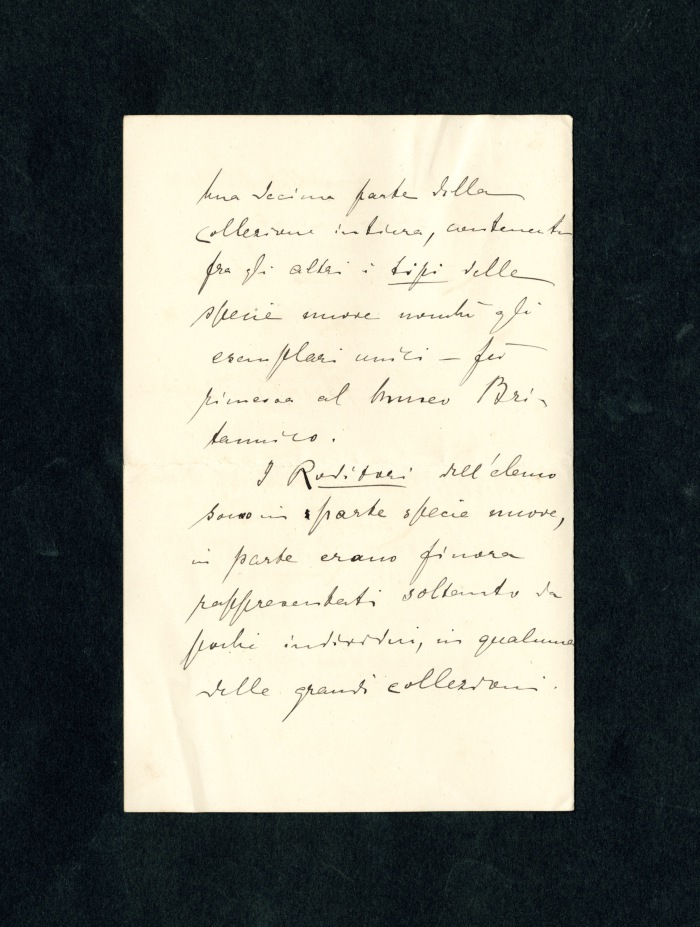 Una decima parte della
collezione intiera, contenente
fra gli altri i tipi delle
specie nuove nonchè gli
esemplari unici — fu
rimessa al Museo Bri-
tannico.
I Roditori dell'elenco
sono in parte specie nuove,
in parte erano finora
rappresentati soltanto da
pochi individui, in qualcuna
delle grandi collezioni.